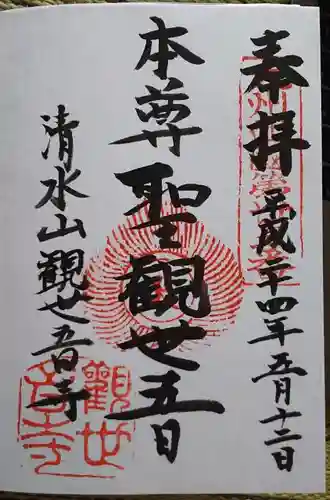 奉拝
平成二十四年五月十二日
本尊聖観世五日
清水山観世五日寺
觀世
音寺